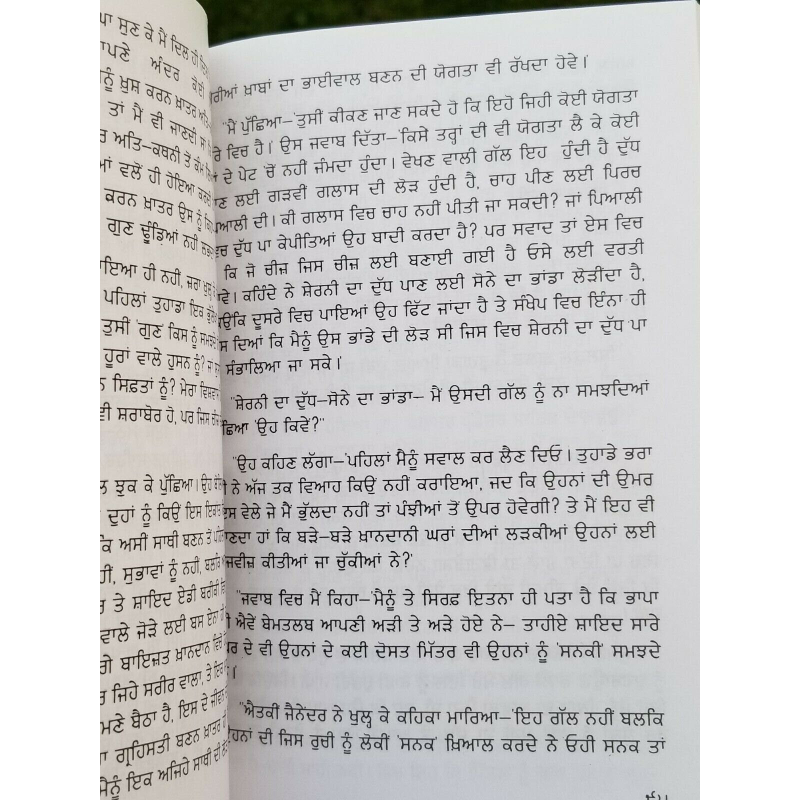 ਪਾ ਸੁਣ ਕੇ ਮੈਂ ਦਿਲ ਹੀ
ਅੰਦਰ ਕੋਈ
ਨੂੰ ਖ਼ੁਸ਼ ਕਰਨ ਖ਼ਾਤਰ
ਤਾਂ ਮੈਂ ਵੀ ਜਾਣਦੀ ਸਾਂ
ਅਤਿ-ਕਥਨੀ ਤੋਂ ਕੰਮ
ਵਲੋਂ ਹੀ ਹੋਇਆ
ਕਰਨ ਖ਼ਾਤਰ ਉਸ ਨੂੰ
ਗੁਣ ਢੂੰਡਿਆਂ ਨਹੀਂ
ਹੀ ਨਹੀਂ, ਜ਼ਰਾ ਖ਼ੁਸ਼
ਪਹਿਲਾਂ ਤੁਹਾਡਾ ਇਕ
ਤੁਸੀਂ 'ਗੁਣ ਕਿਸ ਨੂੰ
ਹੂਰਾਂ ਵਾਲੇ ਹੁਸਨ ਨੂੰ?
ਸਿਫ਼ਤਾਂ ਨੂੰ? ਮੇਰਾ
ਵੀ ਸ਼ਰਾਬੋਰ ਹੋ, ਪਰ ਜਿਸ
ਝੁਕ ਕੇ ਪੁੱਛਿਆ। ਉਹ
ਦੁਹਾਂ ਨੂੰ ਕਿਉਂ ਇਸ
ਕਿ ਅਸੀਂ ਸਾਥੀ ਬਣਨ ਤੋਂ
ਸੁਭਾਵਾਂ ਨੂੰ ਨਹੀਂ,
ਤੇ ਸ਼ਾਇਦ ਏਡੀ ਬਰੀਕੀ
ਵਾਲੇ ਜੋੜੇ ਲਈ ਬਸ ਏਨਾ ਹੀ
ਬਾਇਜ਼ਤ ਖ਼ਾਨਦਾਨ
ਜਿਹੇ ਸਰੀਰ ਵਾਲਾ, ਤੇ
ਬੈਠਾ ਹੈ, ਇਸ ਦੇ ਜੀਵਨ
ਗ੍ਰਹਿਸਤੀ ਬਣਨ ਖ਼ਾਤਰ
ਮੈਨੂੰ ਇਕ ਅਜਿਹੇ ਸਾਥੀ ਦੀ
ਖ਼ਾਬਾਂ ਦਾ ਭਾਈਵਾਲ ਬਣਨ ਦੀ ਯੋਗਤਾ ਵੀ ਰੱਖਦਾ ਹੋਵੇ।
"ਮੈਂ ਪੁੱਛਿਆ–'ਤੁਸੀਂ ਕੀਕਣ ਜਾਣ ਸਕਦੇ ਹੋ ਕਿ ਇਹੋ ਜਿਹੀ ਕੋਈ ਯੋਗਤਾ
ਵਿਚ ਹੈ। ਉਸ ਜਵਾਬ ਦਿੱਤਾ–'ਕਿਸੇ ਤਰ੍ਹਾਂ ਦੀ ਵੀ ਯੋਗਤਾ ਲੈ ਕੇ ਕੋਈ
ਦੇ ਪੇਟ 'ਚੋਂ ਨਹੀਂ ਜੰਮਦਾ ਹੁੰਦਾ। ਵੇਖਣ ਵਾਲੀ ਗੱਲ ਇਹ ਹੁੰਦੀ ਹੈ ਦੁੱਧ
ਲਈ ਗੜਵੀ ਗਲਾਸ ਦੀ ਲੋੜ ਹੁੰਦੀ ਹੈ, ਚਾਹ ਪੀਣ ਲਈ ਪਿਰਚ
ਪਿਆਲੀ ਦੀ। ਕੀ ਗਲਾਸ ਵਿਚ ਚਾਹ ਨਹੀਂ ਪੀਤੀ ਜਾ ਸਕਦੀ? ਜਾਂ ਪਿਆਲੀ
ਵਿਚ ਦੁੱਧ ਪਾ ਕੇਪੀਤਿਆਂ ਉਹ ਬਾਦੀ ਕਰਦਾ ਹੈ? ਪਰ ਸਵਾਦ ਤਾਂ ਏਸ ਵਿਚ
ਕਿ ਜੋ ਚੀਜ਼ ਜਿਸ ਚੀਜ਼ ਲਈ ਬਣਾਈ ਗਈ ਹੈ ਓਸੇ ਲਈ ਵਰਤੀ
ਕਹਿੰਦੇ ਨੇ ਸ਼ੇਰਨੀ ਦਾ ਦੁੱਧ ਪਾਣ ਲਈ ਸੋਨੇ ਦਾ ਭਾਂਡਾ ਲੋੜੀਂਦਾ ਹੈ,
ਦੂਸਰੇ ਵਿਚ ਪਾਇਆਂ ਉਹ ਫਿੱਟ ਜਾਂਦਾ ਹੈ ਤੇ ਸੰਖੇਪ ਵਿਚ ਇੰਨਾ ਹੀ
ਦਿਆਂ ਕਿ ਮੈਨੂੰ ਉਸ ਭਾਂਡੇ ਦੀ ਲੋੜ ਸੀ ਜਿਸ ਵਿਚ ਸ਼ੇਰਨੀ ਦਾ ਦੁੱਧ ਪਾ
ਸੰਭਾਲਿਆ ਜਾ ਸਕੇ।
"ਸ਼ੇਰਨੀ ਦਾ ਦੁੱਧ–ਸੋਨੇ ਦਾ ਭਾਂਡਾ– ਮੈਂ ਉਸਦੀ ਗੱਲ ਨੂੰ ਨਾ ਸਮਝਦਿਆਂ
'ਉਹ ਕਿਵੇਂ?"
"ਉਹ ਕਹਿਣ ਲੱਗਾ–'ਪਹਿਲਾਂ ਮੈਨੂੰ ਸਵਾਲ ਕਰ ਲੈਣ ਦਿਓ। ਤੁਹਾਡੇ ਭਰਾ
ਨੇ ਅੱਜ ਤਕ ਵਿਆਹ ਕਿਉਂ ਨਹੀਂ ਕਰਾਇਆ, ਜਦ ਕਿ ਉਹਨਾਂ ਦੀ ਉਮਰ
ਵੇਲੇ ਜੇ ਮੈਂ ਭੁੱਲਦਾ ਨਹੀਂ ਤਾਂ ਪੰਝੀਆਂ ਤੋਂ ਉਪਰ ਹੋਵੇਗੀ? ਤੇ ਮੈਂ ਇਹ ਵੀ
ਹਾਂ ਕਿ ਬੜੇ-ਬੜੇ ਖ਼ਾਨਦਾਨੀ ਘਰਾਂ ਦੀਆਂ ਲੜਕੀਆਂ ਉਹਨਾਂ ਲਈ
ਕੀਤੀਆਂ ਜਾ ਚੁੱਕੀਆਂ ਨੇ?'
"ਜਵਾਬ ਵਿਚ ਮੈਂ ਕਿਹਾ–'ਮੈਨੂੰ ਤੇ ਸਿਰਫ਼ ਇਤਨਾ ਹੀ ਪਤਾ ਹੈ ਕਿ ਭਾਪਾ
ਐਵੇਂ ਬੇਮਤਲਬ ਆਪਣੀ ਅੜੀ ਤੇ ਅੜੇ ਹੋਏ ਨੇ– ਤਾਹੀਏਂ ਸ਼ਾਇਦ ਸਾਰੇ
ਦੇ ਵੀ ਉਹਨਾਂ ਦੇ ਕਈ ਦੋਸਤ ਮਿੱਤਰ ਵੀ ਉਹਨਾਂ ਨੂੰ 'ਸਨਕੀ' ਸਮਝਦੇ
"ਐਤਕੀਂ ਜੈਨੇਂਦਰ ਨੇ ਖੁਲ੍ਹ ਕੇ ਕਹਿਕਾ ਮਾਰਿਆ–'ਇਹ ਗੱਲ ਨਹੀਂ ਬਲਕਿ
ਦੀ ਜਿਸ ਰੁਚੀ ਨੂੰ ਲੋਕੀਂ 'ਸਨਕ' ਖ਼ਿਆਲ ਕਰਦੇ ਨੇ ਓਹੀ ਸਨਕ ਤਾਂ